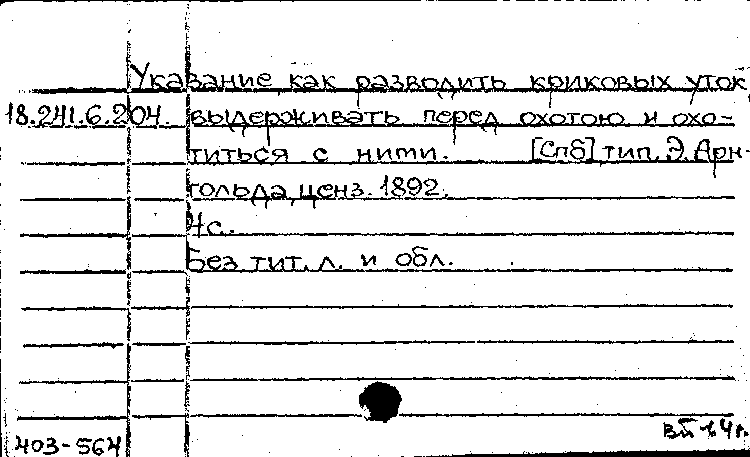 Указание, как разводить криковых уток
18.241.6.204. выдерживать перед охотою и охо-
титься с ними. [Спб] тип. Э. Арн-
гольда, ценз. 1892.
4с.
Без тит. л. и обл.
403-564